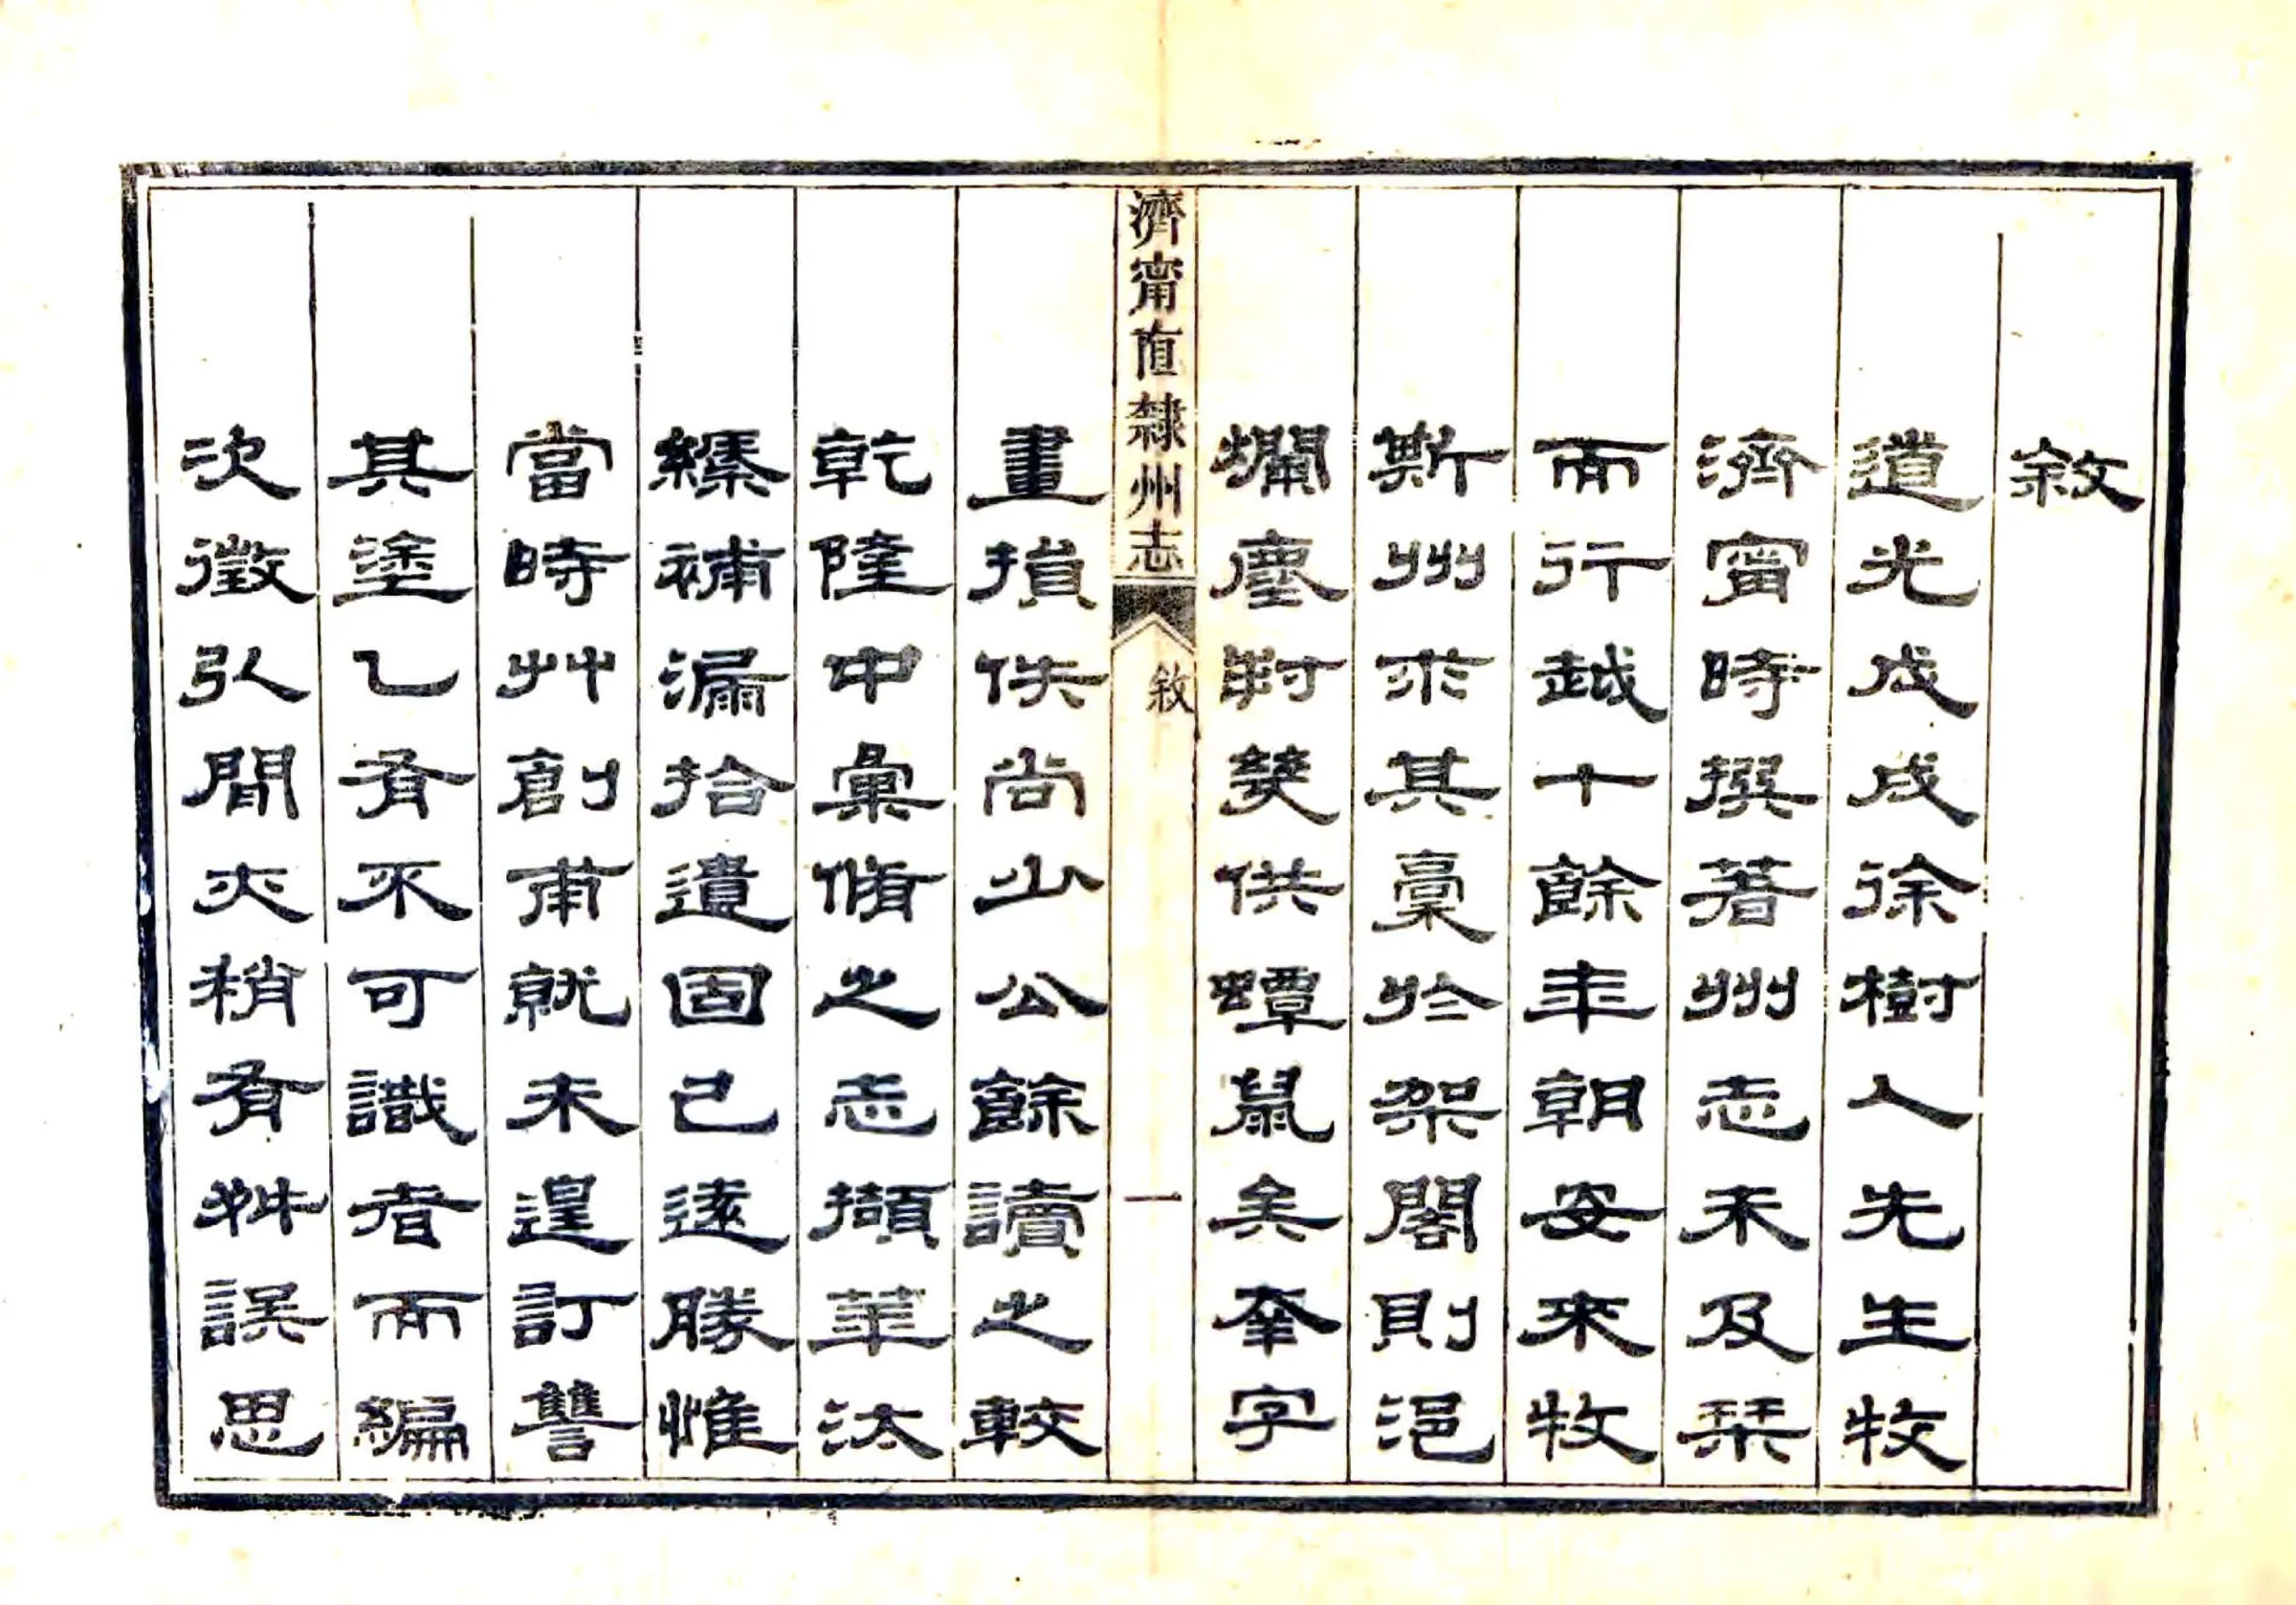 敘
道光戊戌徐樹人先生牧
濟甯時撰著州志未及栞
而行越十餘年朝安來牧
斯州求其稾於架閣則浥
爛塵封幾供蟫鼠矣幸字
濟甯直隸州志 敘 一
畫損佚尚少公餘讀之較
乾隆中彙脩之志擷華汰
補漏拾遺固已遠勝惟
當時艸創甫就未遑訂讐
其塗乙有不可識者而編
次徵引閒亦稍有舛誤思